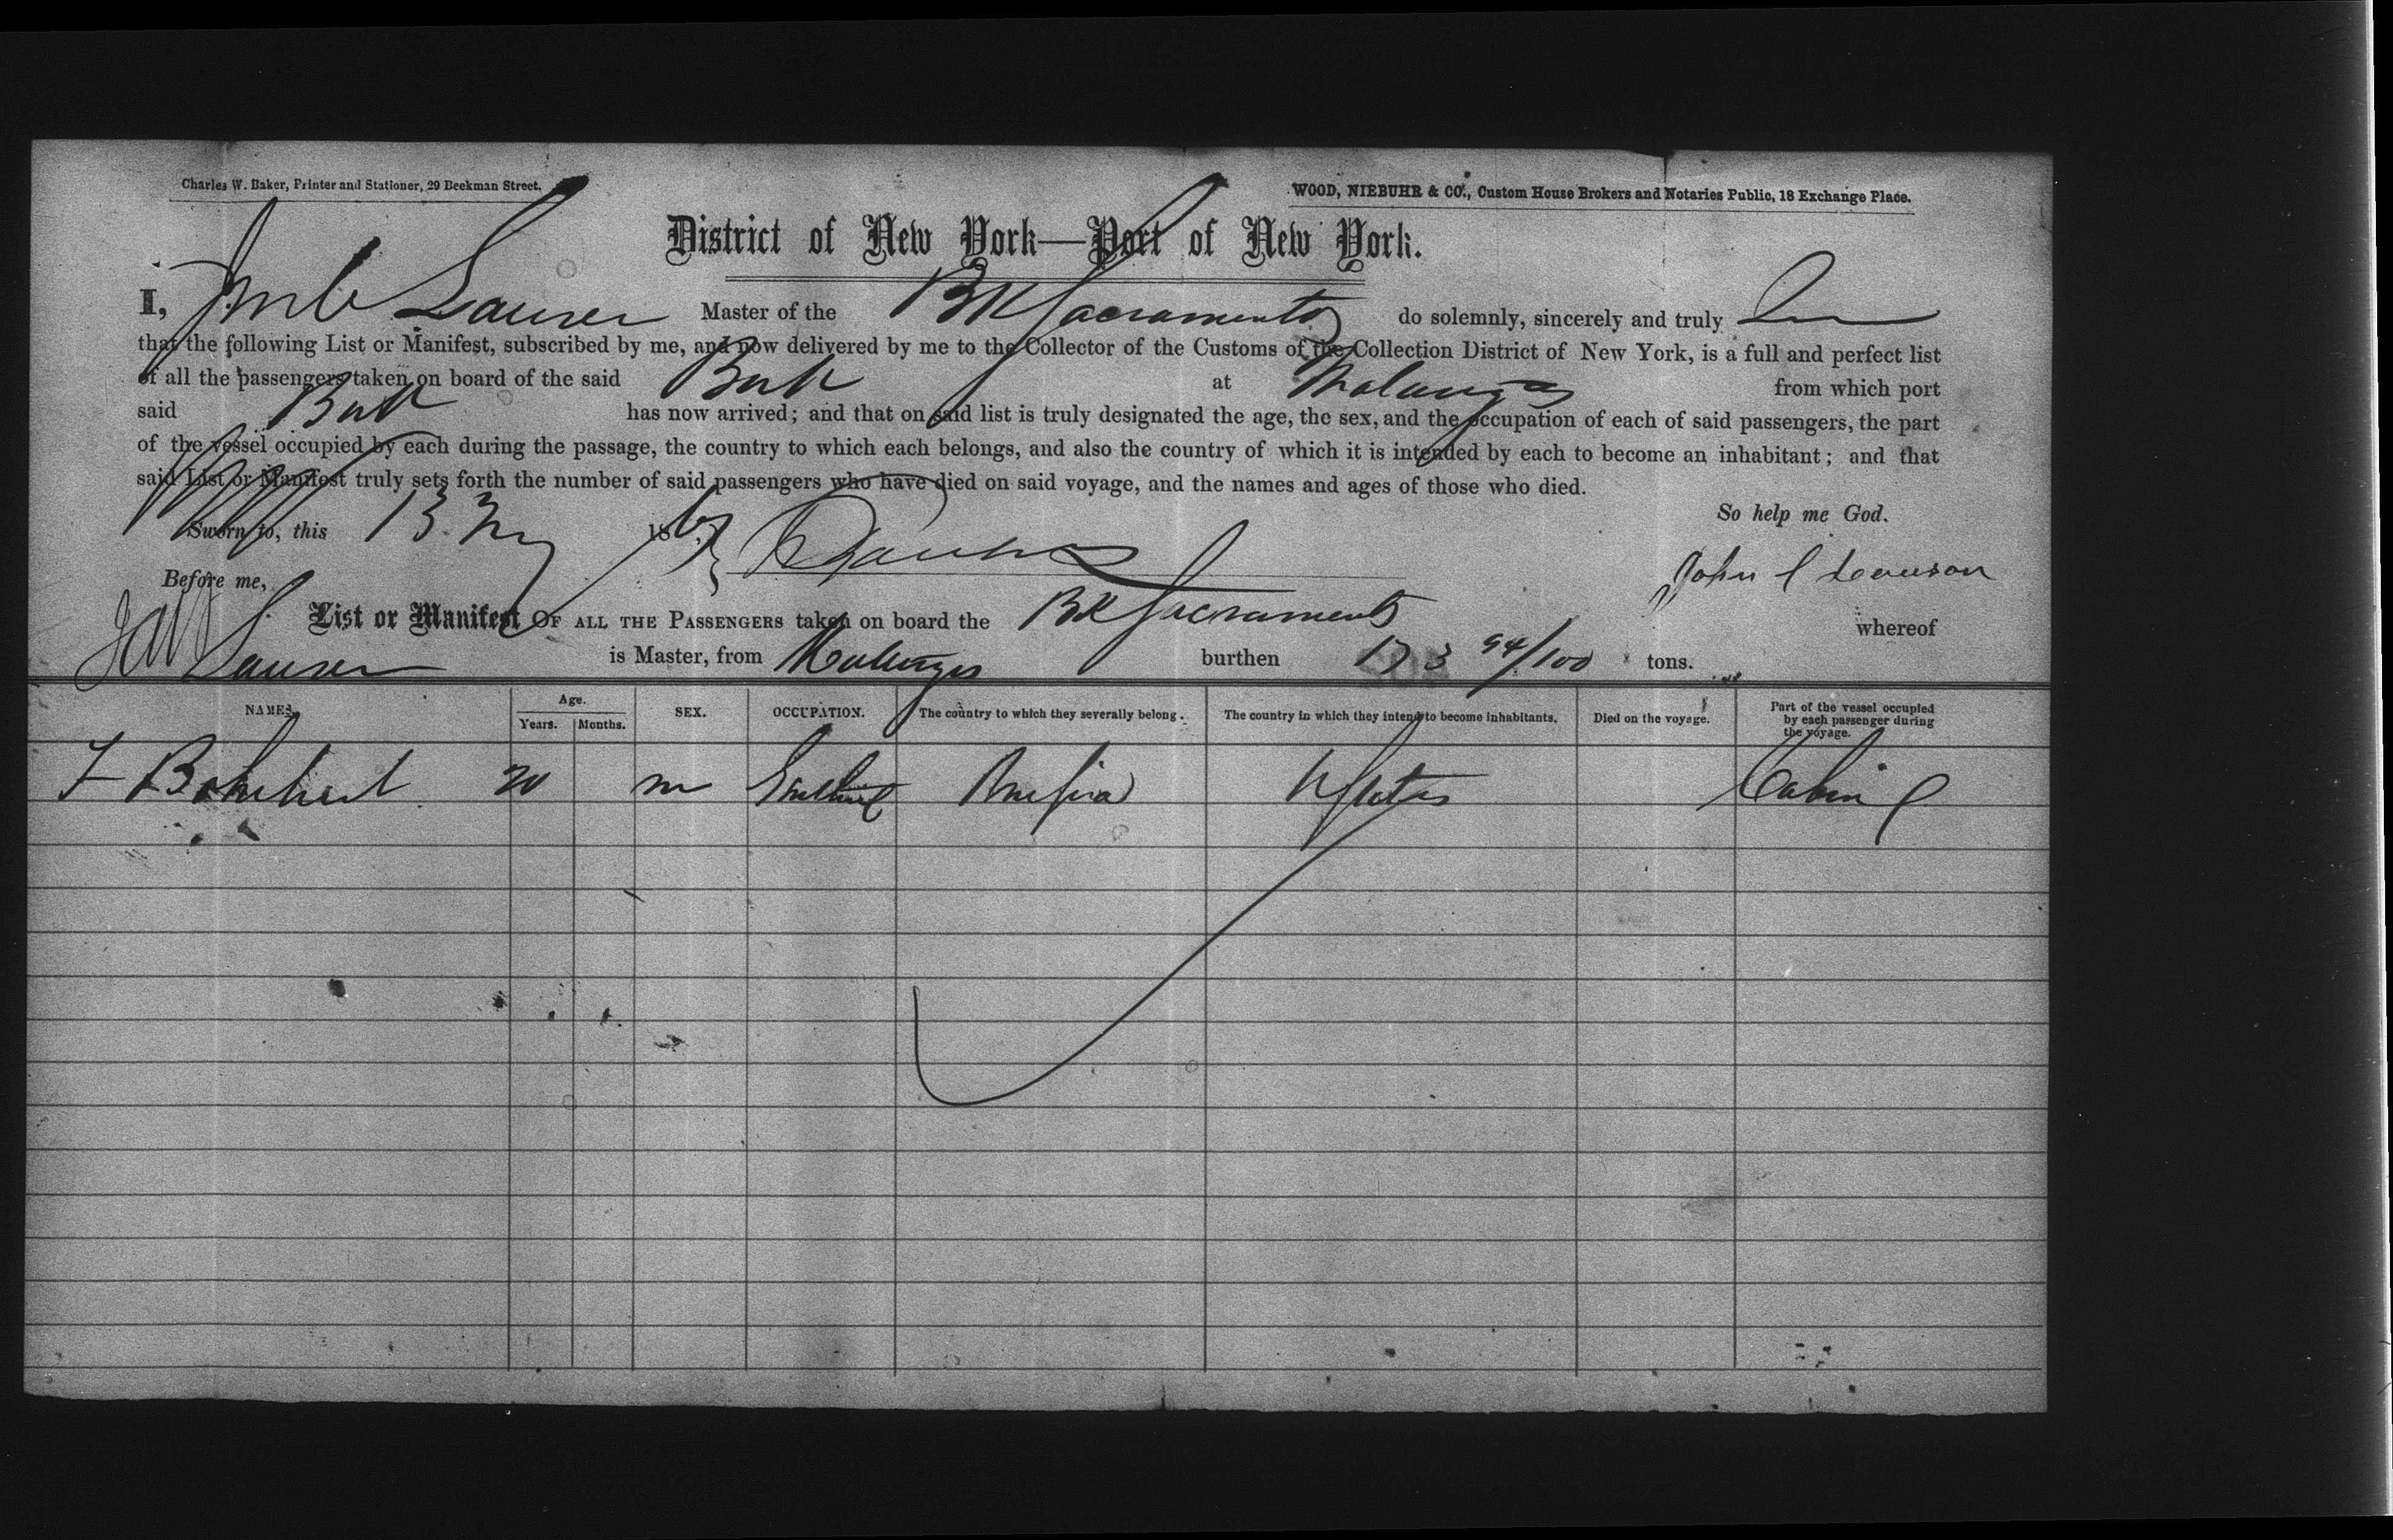 Charles W. Baker, Printer and Stationer, 29 Beekman Street.
WOOD, NIEBUHR & CO., Custom House Brokers and Notaries Public, 18 Exchange Place.
District of New York—Port of New York.
I, Master of the Bk Sacramento do solemnly, sincerely and truly
that the following List or Manifest, subscribed by me, and now delivered by me to the Collector of the Customs of the Collection District of New York, is a full and perfect list
of all the passengers taken on board of the said Bark at from which port
said Bark has now arrived; and that on said list is truly designated the age, the sex, and the occupation of each of said passengers, the part
of the vessel occupied by each during the passage, the country to which each belongs, and also the country of which it is intended by each to become an inhabitant; and that
said List or Manifest truly sets forth the number of said passengers who have died on said voyage, and the names and ages of those who died.
So help me God.
Sworn to, this 13 186
Before me,
John
List or Manifest OF ALL THE PASSENGERS taken on board the Bk Sacramento whereof
is Master, from burthen 173 94/100 tons.
NAMES. Age. Years. Months. SEX. OCCUPATION. The country to which they severally belong. The country in which they intend to become inhabitants. Died on the voyage. Part of the vessel occupied by each passenger during the voyage.
F 20 m U States Cabin